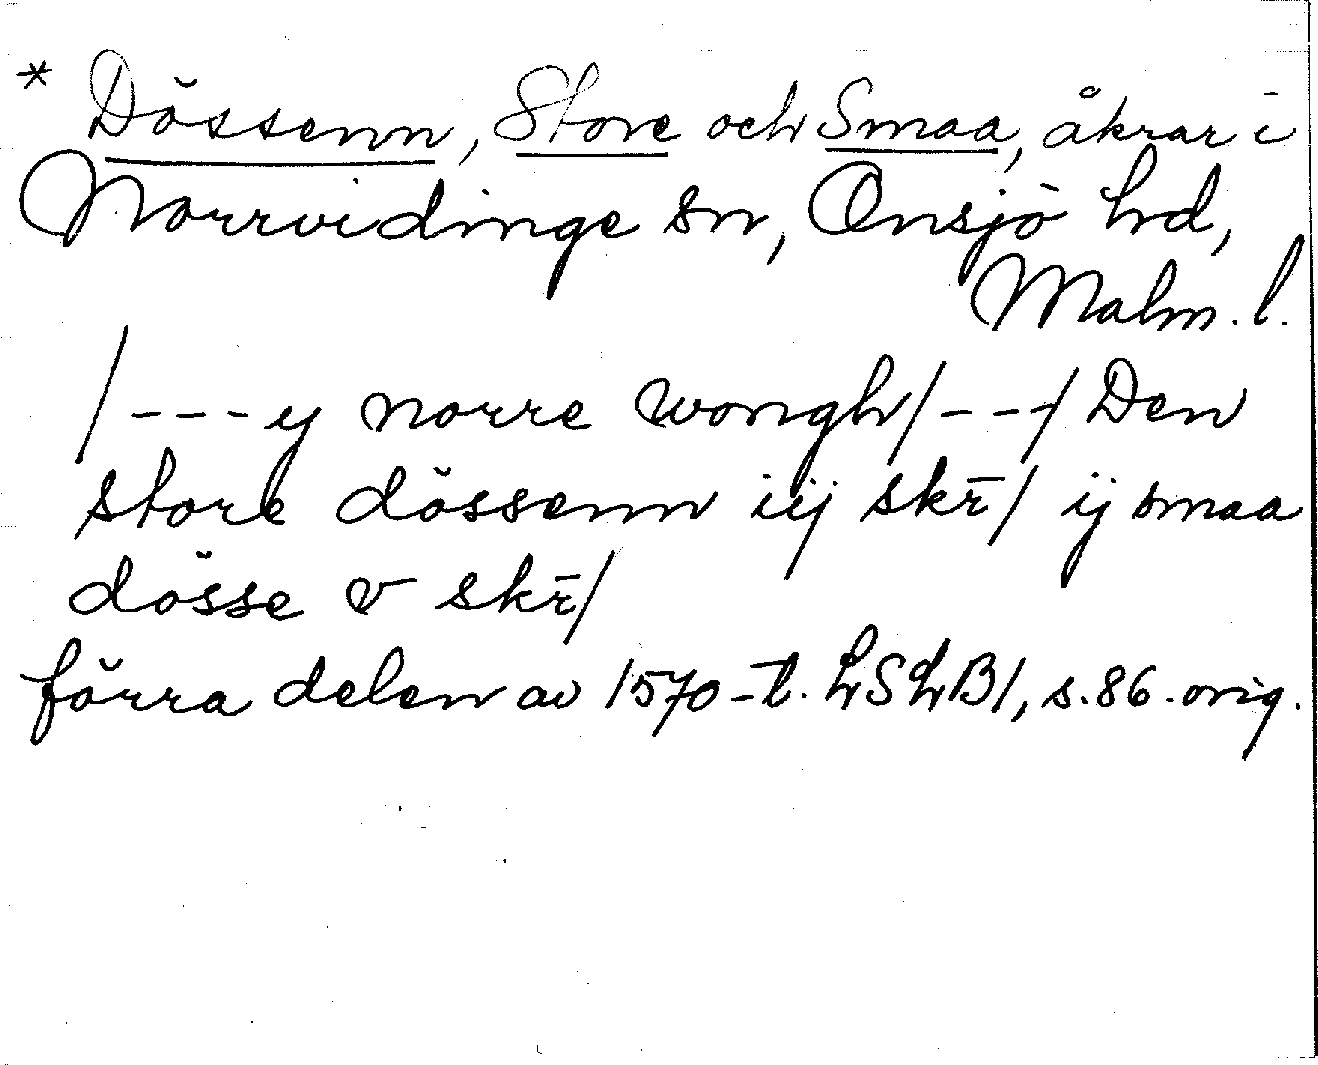 * Dössenn, Store och Smaa, åkrar i
Norrvidinge sn, Onsjö hd,
Malm. l.
/---y norre wongh/---/ Den
store dössenn iij skr̄/ ij smaa
dösse v skr̄/
förra delen av 1570-t. LSLB1, s. 86. orig.